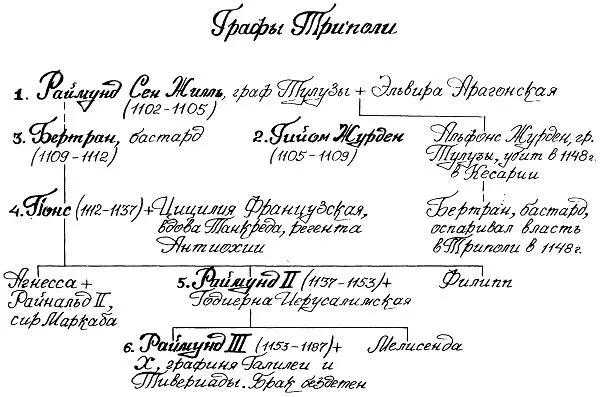 Графы Триполи
1. Раймунд Сен Жилль, граф Тулузы + Эльвира Арагонская
(1102-1105)
3. Бертран, бастард
(1109-1112)
2. Гийом Журден
(1105-1109)
Альфонс Журден, гр.
Тулузы, убит в 1148г.
в Кесарии
4. Понс (1112-1137) + Цицилия Французская,
вдова Танкреда, регента
Антиохии
Бертран, бастард,
оспаривал власть
в Триполи в 1148г.
Агнесса +
Райнальд II,
сир Маркаба
5. Раймунд II (1137-1153) +
Годиерна Иерусалимская
Филипп
6. Раймунд III (1153-1187) +
X, графиня Галилеи и
Тивериады. Брак бездетен
Мелисенда